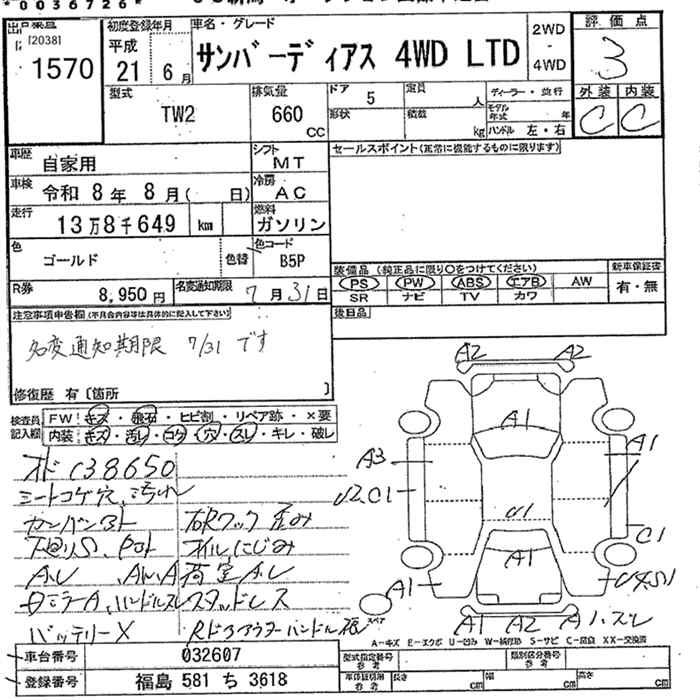 *0036726*
出品票
[2038]
1570
初度登録年月
平成
21 6月
車名・グレード
サンバーディアス 4WD LTD
2WD
・
4WD
評価点
3
外装 内装
C C
型式
TW2
排気量
660
CC
ドア
5
形状
定員
人
積載
kg
ディーラー・並行
モデル年式 年
ハンドル 左・右
車歴
自家用
シフト
MT
車検
令和 8年 8月( 日)
冷房
AC
走行
13万8千649 km
燃料
ガソリン
色
ゴールド
色替
色コード
B5P
R券
8,950円
名変通知期限
7月31日
セールスポイント(正常に機能するものに限ります)
装備品(純正品に限り○をつけてください)
PS PW ABS エアB AW
SR ナビ TV カワ
新車保証書
有・無
後日品
注意事項申告欄(不具合内容等は具体的に記入して下さい)
名変通知期限 7/31 です
修復歴 有〔箇所 〕
検査員記入欄
FW キズ・飛石・ヒビ割・リペア跡・×要
内装 キズ・汚れ・コゲ・穴・スレ・キレ・破レ
オド 138650
シートコゲ穴、汚れ
AU
荷室AU
ハンドルスレ
スタッドレス
オイルにじみ
バッテリーX
A2 A2
A1
A3
A1
U2C1
U1
C1
A1
A1
スペア
A1 A2 A1スレ
A-キズ E-エクボ U-凹み W-補修跡 S-サビ C-腐食 XX-交換済
車台番号
032607
登録番号
福島 581 ち 3618
型式指定番号
参考
類別区分番号
参考
車体証明用
参考
長さ cm
幅 cm
高さ cm